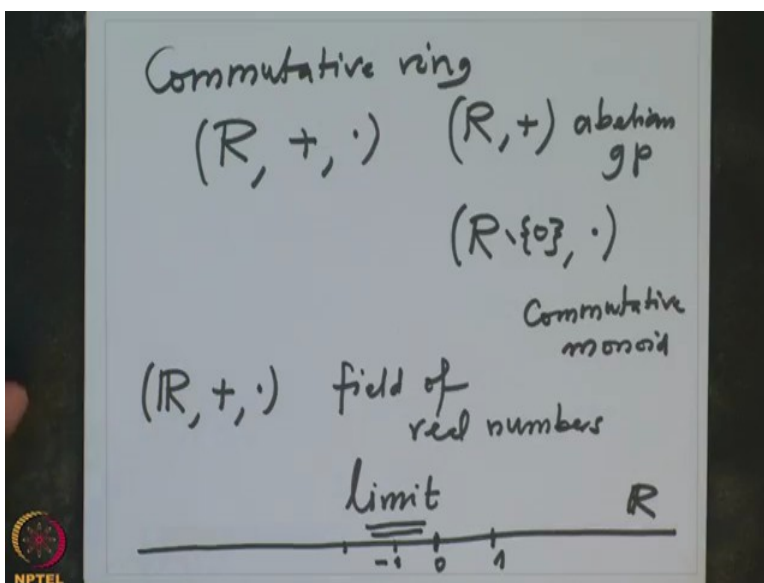 Commutative ring
(R, +, ·) (R, +) abelian
gp
(R∖{0}, ·)
Commutative
monoid
(ℝ, +, ·) field of
real numbers
limit
ℝ
-1 0 1
NPTEL